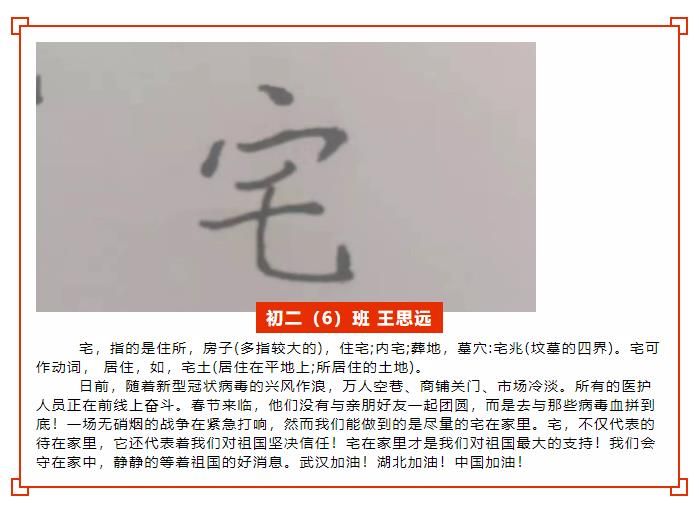 宅
初二（6）班 王思远
宅，指的是住所，房子(多指较大的)，住宅;内宅;葬地，墓穴:宅兆(坟墓的四界)。宅可
作动词， 居住，如，宅土(居住在平地上;所居住的土地)。
日前，随着新型冠状病毒的兴风作浪，万人空巷、商铺关门、市场冷淡。所有的医护
人员正在前线上奋斗。春节来临，他们没有与亲朋好友一起团圆，而是去与那些病毒血拼到
底！一场无硝烟的战争在紧急打响，然而我们能做到的是尽量的宅在家里。宅，不仅代表的
待在家里，它还代表着我们对祖国坚决信任！宅在家里才是我们对祖国最大的支持！我们会
守在家中，静静的等着祖国的好消息。武汉加油！湖北加油！中国加油！